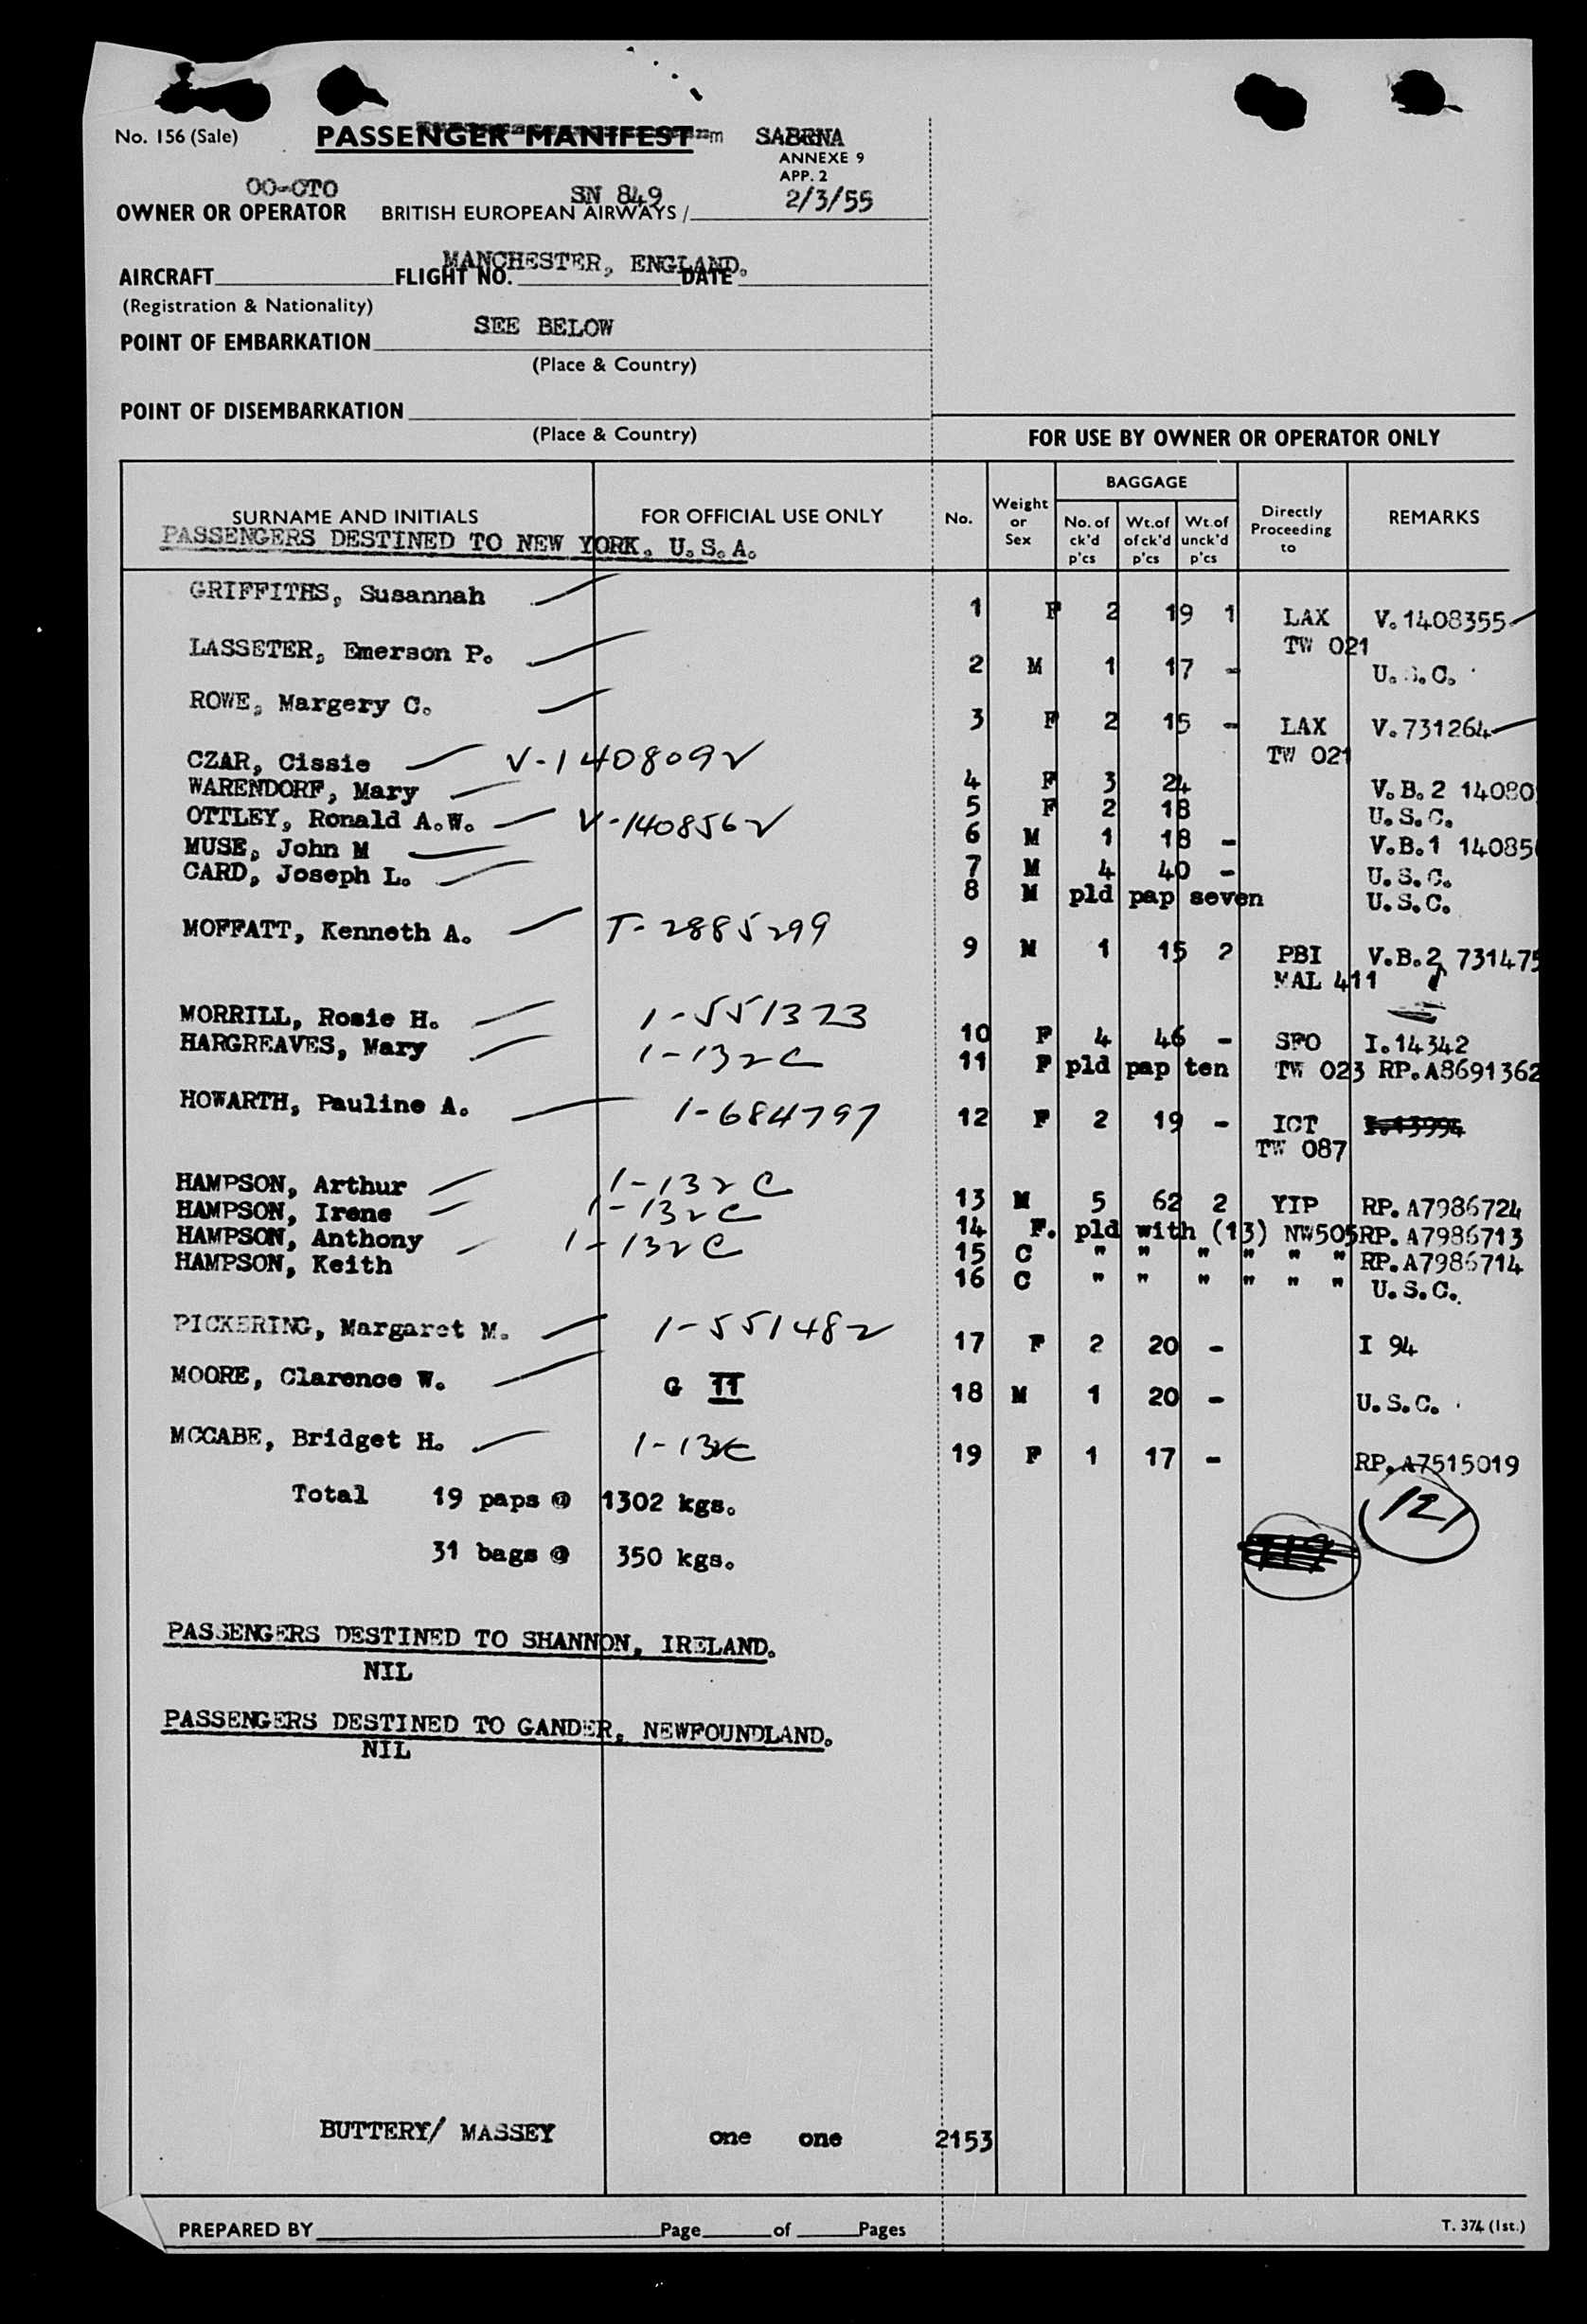 No. 156 (Sale) PASSENGER MANIFEST SABENA
ANNEXE 9
APP. 2
OO-CTO SN 849 2/3/55
OWNER OR OPERATOR BRITISH EUROPEAN AIRWAYS /
MANCHESTER, ENGLAND.
AIRCRAFT FLIGHT NO. DATE
(Registration & Nationality)
SEE BELOW
POINT OF EMBARKATION
(Place & Country)
POINT OF DISEMBARKATION
(Place & Country)
FOR USE BY OWNER OR OPERATOR ONLY
SURNAME AND INITIALS FOR OFFICIAL USE ONLY No. Weight or Sex BAGGAGE No. of ck'd p'cs Wt.of ofck'd p'cs Wt.of unck'd p'cs Directly Proceeding to REMARKS
PASSENGERS DESTINED TO NEW YORK, U.S.A.
GRIFFITHS, Susannah 1 F 2 19 1 LAX V.1408355
TW 021
LASSETER, Emerson P. 2 M 1 17 - U.S.C.
ROWE, Margery C. 3 F 2 15 - LAX V.731264
TW 021
CZAR, Cissie V-1408092 4 F 3 24 V.B.2 14080
WARENDORF, Mary 5 F 2 18 U.S.C.
OTTLEY, Ronald A.W. V-1408562 6 M 1 18 - V.B.1 14085
MUSE, John M 7 M 4 40 - U.S.C.
CARD, Joseph L. 8 M pld pap seven U.S.C.
MOFFATT, Kenneth A. T-2885299 9 M 1 15 2 PBI V.B.2 731475
MAL 411
MORRILL, Rosie H. 1-551323 10 F 4 46 - SFO I.14342
HARGREAVES, Mary 1-132C 11 F pld pap ten TW 023 RP.A8691362
HOWARTH, Pauline A. 1-684797 12 F 2 19 - ICT I.13994
TW 087
HAMPSON, Arthur 1-132C 13 M 5 62 2 YIP RP.A7986724
HAMPSON, Irene 1-132C 14 F. pld with (13) NW505 RP.A7986713
HAMPSON, Anthony 1-132C 15 C " " " " " " RP.A7986714
HAMPSON, Keith 16 C " " " " " " U.S.C.
PICKERING, Margaret M. 1-551482 17 F 2 20 - I 94
MOORE, Clarence W. G II 18 M 1 20 - U.S.C.
MCCABE, Bridget H. 1-132C 19 F 1 17 - RP.A7515019
Total 19 paps @ 1302 kgs. 121
31 bags @ 350 kgs.
PASSENGERS DESTINED TO SHANNON, IRELAND.
NIL
PASSENGERS DESTINED TO GANDER, NEWFOUNDLAND.
NIL
BUTTERY/ MASSEY one one 2153
PREPARED BY Page of Pages T. 374 (1st.)